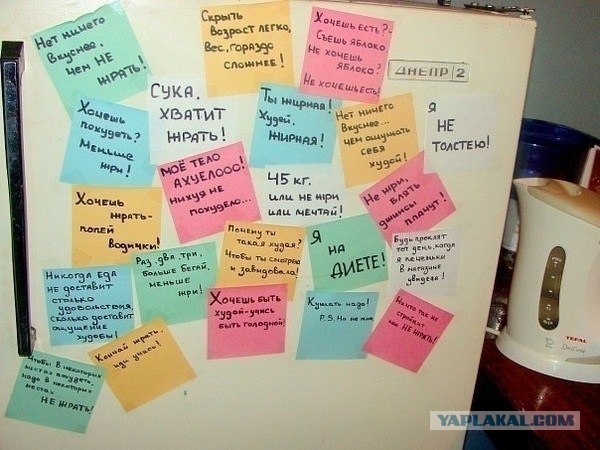 Нет ничего
вкуснее,
чем НЕ
ЖРАТЬ!
Скрыть
возраст легко,
вес, гораздо
сложнее!
Хочешь есть?-
Съешь яблоко
Не хочешь
яблоко?
Не хочешь есть!
ДНЕПР 2
Хочешь
похудеть?
Меньше
жри!
СУКА,
ХВАТИТ
ЖРАТЬ!
Ты жирная!
Худей,
ЖИРНАЯ!
Нет ничего
вкуснее...
чем ощущать
себя
худой!
Я
НЕ
ТОЛСТЕЮ!
Хочешь
жрать-
попей
водички!
МОЁ ТЕЛО
АХУЕЛООО!
нихуя не
похудело...
45 кг.
или не жри
или мечтай!
Не жри,
блять
джинсы
плачут!
Никогда еда
не доставит
столько
удовольствия,
сколько доставит
ощущение
худобы!
Раз, два, три,
больше бегай,
меньше
жри!
Почему ты
такая худая?
Чтобы ты смотрела
и завидовала!
Я
НА
ДИЕТЕ!
Будь проклят
тот день, когда
я печеньки
в магазине
увидела!
Чтобы в некоторых
местах похудеть,
надо в некоторых
местах
НЕ ЖРАТЬ!
Кончай жрать,
иди учись!
Хочешь быть
худой-учись
быть голодной!
Кушать надо!
P.S. Но не мне
Ничто так не
стройнит,
как НЕ ЖРАТЬ!
TEFAL
YAPLAKAL.COM